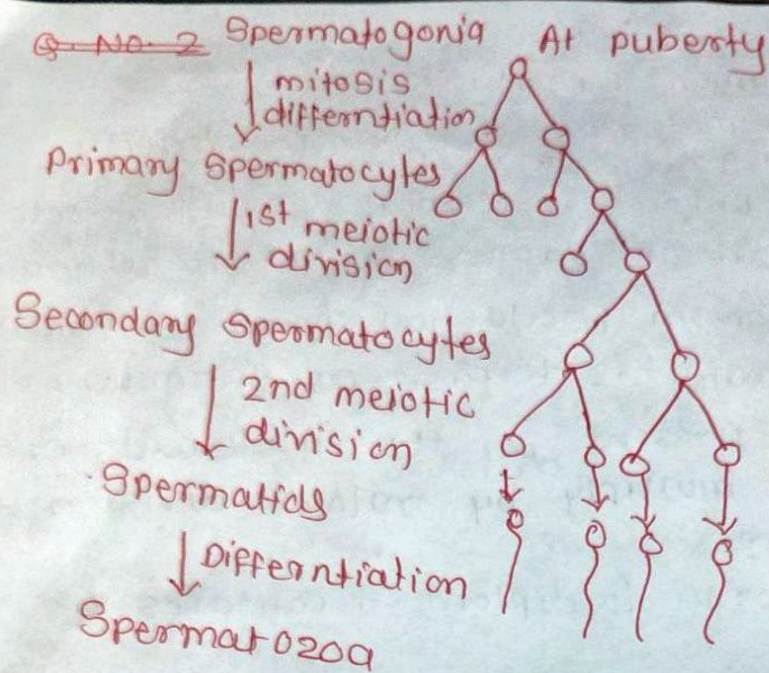 Q No. 2 Spermatogonia At puberty
mitosis
differntiation
Primary Spermatocytes
1st meiotic
division
Secondary Spermatocytes
2nd meiotic
division
Spermatids
Differntiation
Spermatozoa